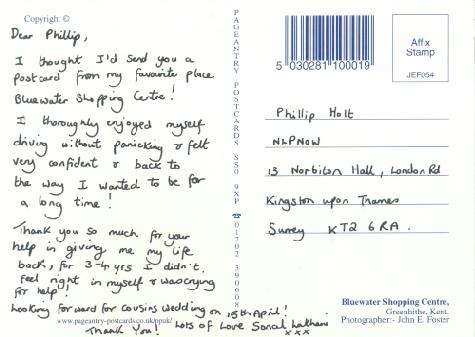 Copyright: ©
Dear Phillip,
I thought I'd send you a
postcard from my favourite place
Bluewater Shopping Centre!
I thoroughly enjoyed myself
driving without panicking & felt
very confident & back to
the way I wanted to be for
a long time!
Thank you so much for your
help in giving me my life
back, for 3-4 yrs I didn't
feel right in myself & was crying
for help!
Looking forward for cousins wedding on 15th April!
www.pageantry-postcards.co.uk/ppuk/
Thank You! Lots of Love Sonal Lakhani
xxx
PAGEANTRY POSTCARDS SS0 9XP ☎ 01702 390608
5 030281 100019
Affix
Stamp
JEF054
Phillip Holt
NLPNOW
13 Norbiton Hall, London Rd
Kingston upon Thames
Surrey KT2 6RA.
Bluewater Shopping Centre,
Greenhithe, Kent.
Photographer:- John E. Foster